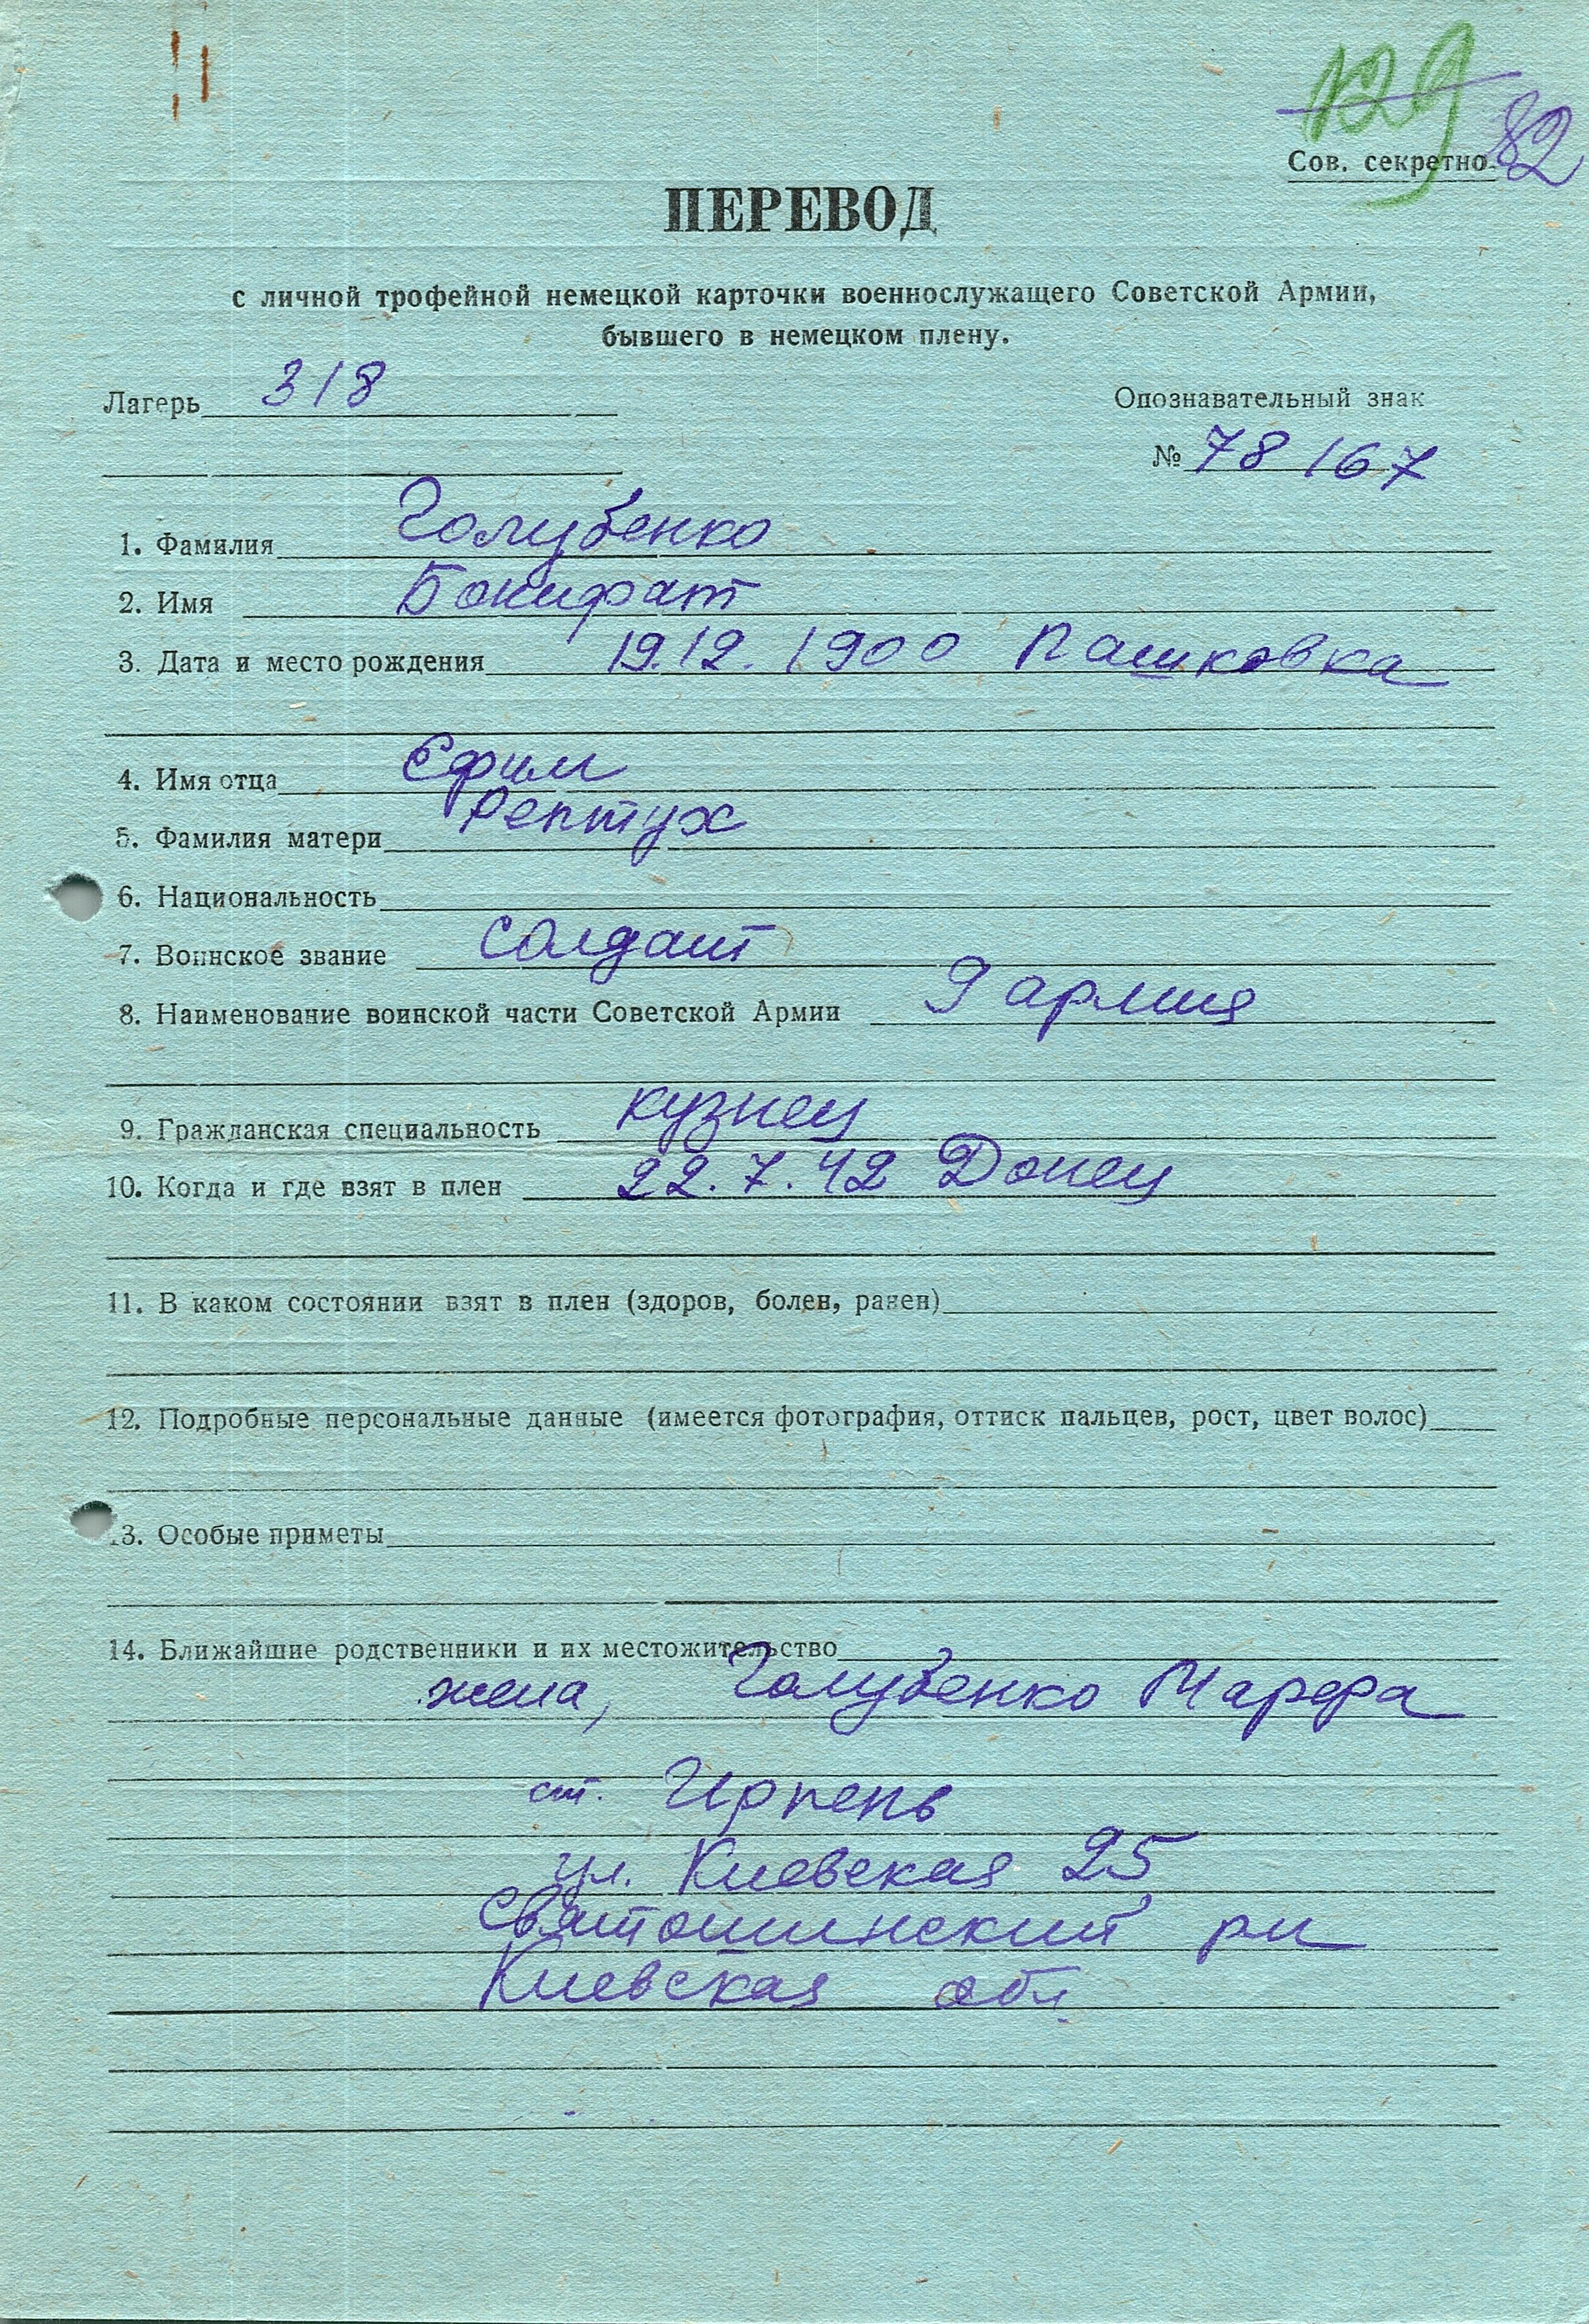 129 82
Сов. секретно
ПЕРЕВОД
с личной трофейной немецкой карточки военнослужащего Советской Армии,
бывшего в немецком плену.
Лагерь 318
Опознавательный знак
№ 78167
1. Фамилия Голубенко
2. Имя Бонифат
3. Дата и место рождения 19.12.1900 Пашковка
4. Имя отца Ефим
5. Фамилия матери Рептух
6. Национальность
7. Воинское звание солдат
8. Наименование воинской части Советской Армии 9 армия
9. Гражданская специальность кузнец
10. Когда и где взят в плен 22.7.42 Донец
11. В каком состоянии взят в плен (здоров, болен, ранен)
12. Подробные персональные данные (имеется фотография, оттиск пальцев, рост, цвет волос)
13. Особые приметы
14. Ближайшие родственники и их местожительство
жена, Голубенко Марфа
ст. Ирпень
ул. Киевская 25
Святошинский рн
Киевская обл.